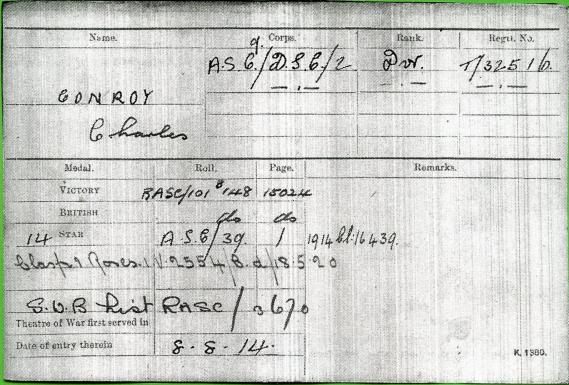 Name. Corps. Rank. Regtl. No.
A.S.C./D.S.C/2 Dvr. T/32516.
CONROY
Charles
Medal. Roll. Page. Remarks.
VICTORY RASC/101 B 148 15024
BRITISH do do
14 STAR A.S.C/39. 1 1914 Cl:16439.
Clasp &
S.W.B List RASC/
Theatre of War first served in
Date of entry therein 8-8-14.
K. 1380.